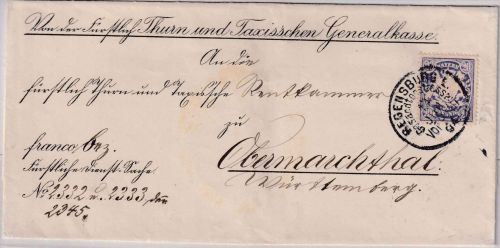 Von der Fürstlich Thurn und Taxisschen Generalkasse.
An die
fürstlich Thurn und Taxissche Rentkammer
zu
Obermarchthal.
Württemberg.
franco bez.
Fürstliche Dienst-Sache
No. 2332 u. 2333, den
2345.
REGENSBURG I
BAYERN